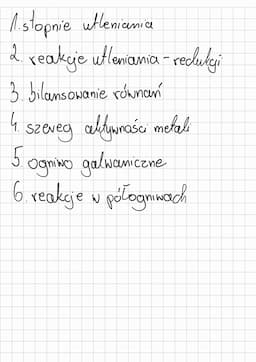 1. stopnie utleniania
2. reakcje utleniania - redukcji
3. bilansowanie równań
4. szereg aktywności metali
5. ogniwo galwaniczne
6. reakcje w półogniwach